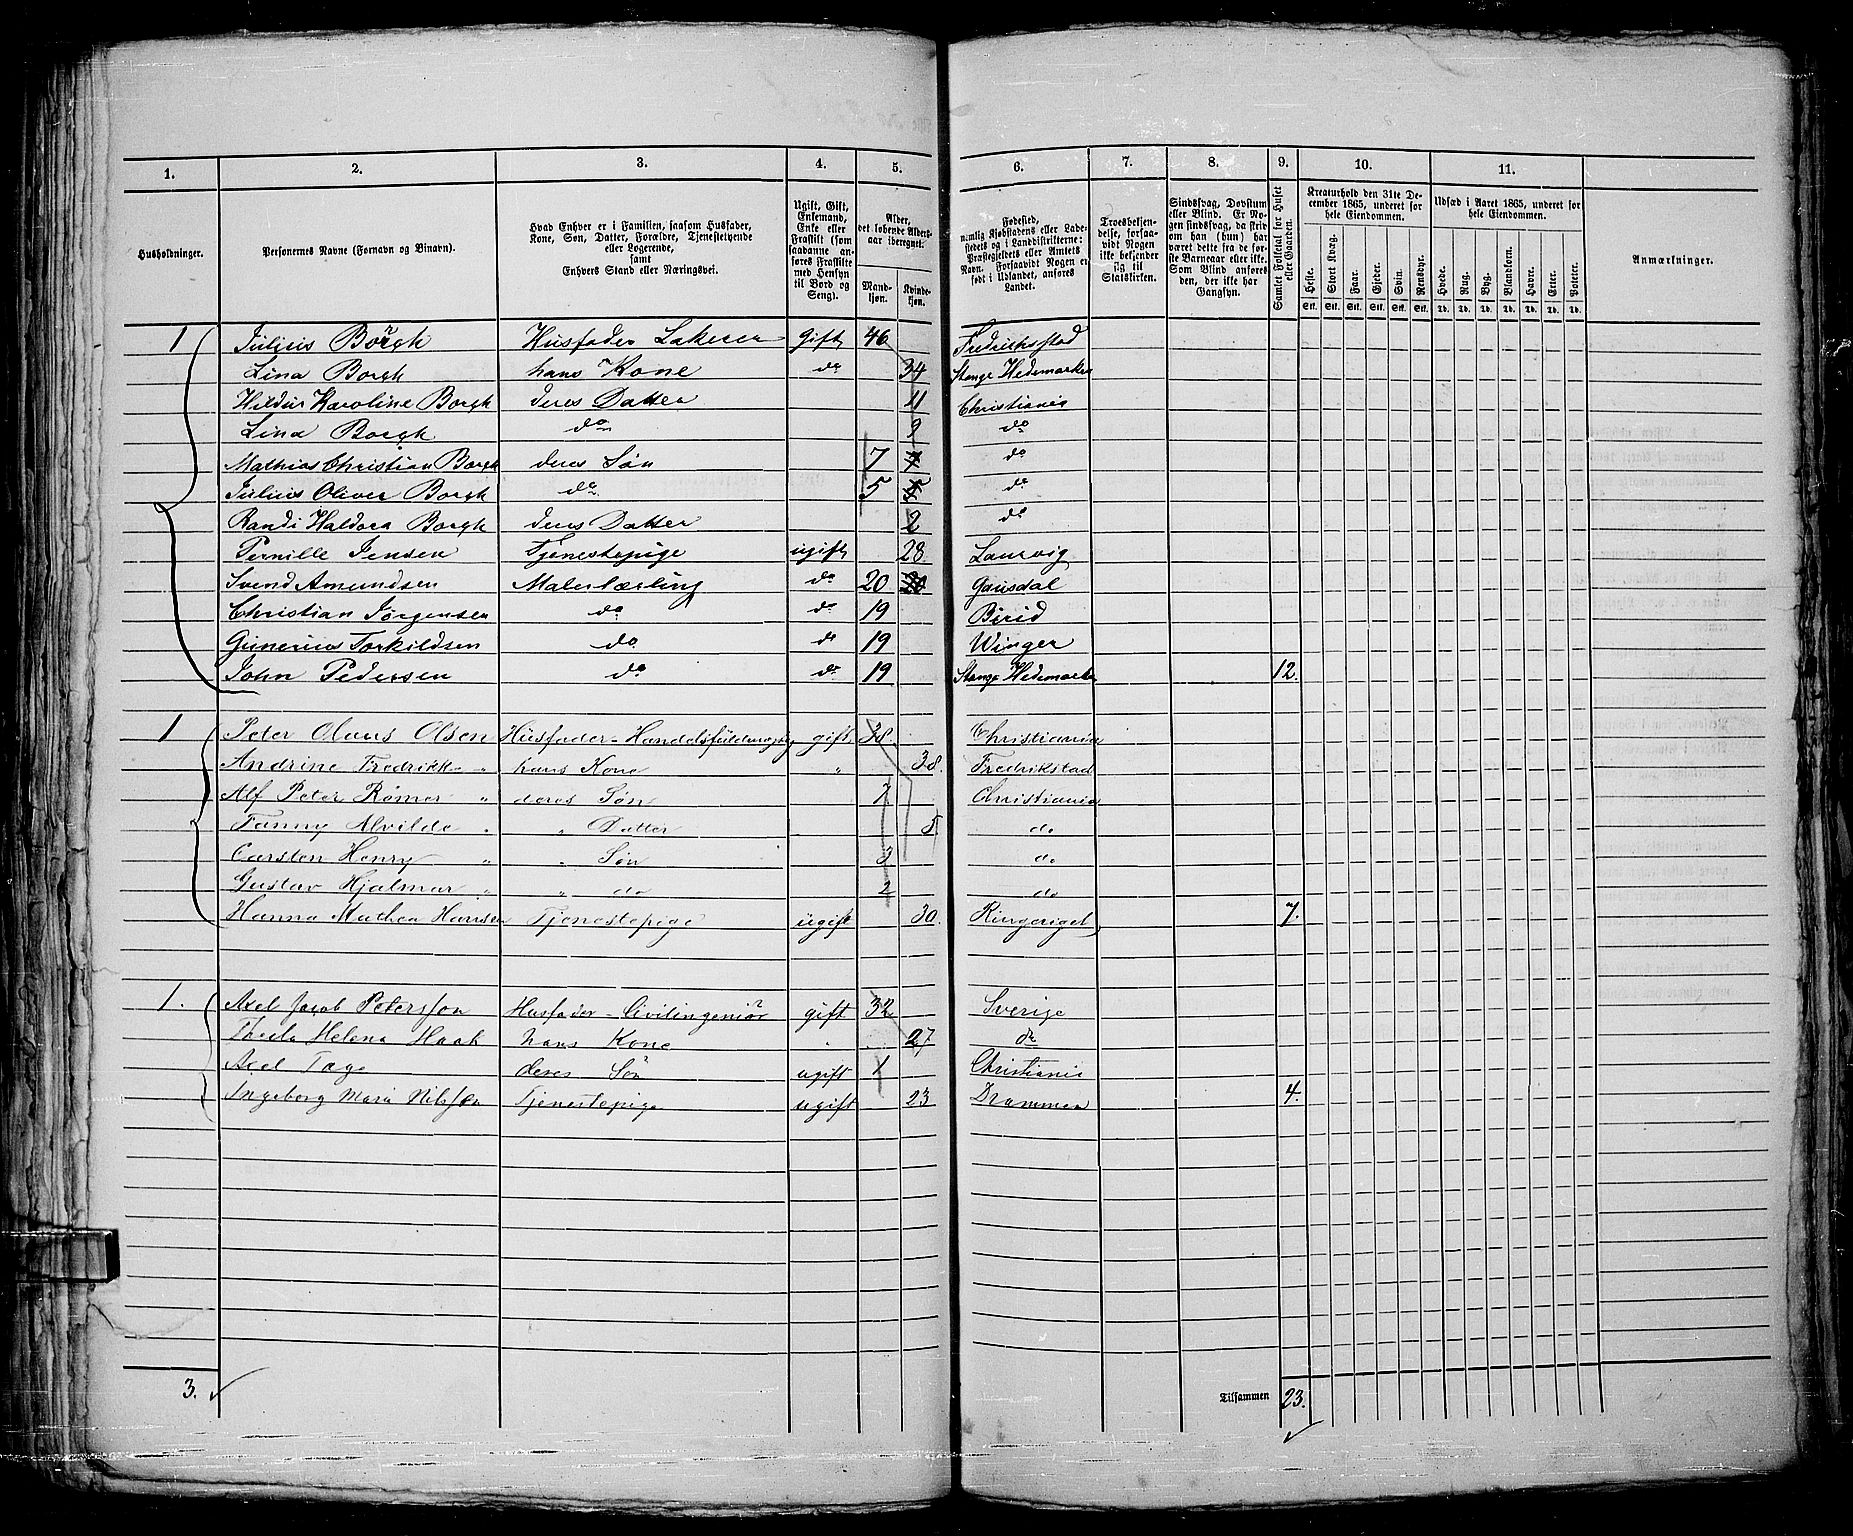 1. 2. 3. 4. 5. 6. 7. 8. 9. 10. 11.
Husholdninger.
Personernes Navne (Fornavn og Binavn).
Hvad Enhver er i Familien, saasom Husfader,
Kone, Søn, Datter, Forældre, Tjenestetyende
eller Logerende,
samt
Enhvers Stand eller Næringsvei.
Ugift, Gift,
Enkemand,
Enke eller
Fraskilt (som
saadanne an-
føres Fraskilte
med Hensyn
til Bord og
Seng).
Alder,
det løbende Alders-
aar iberegnet.
Mand-
kjøn.
Kvinde-
kjøn.
Fødested,
nemlig Kjøbstadens eller Lade-
stedets og i Landdistrikterne:
Præstegjeldets eller Amtets
Navn. Forsaavidt Nogen er
født i Udlandet, anføres
Landet.
Troesbekjen-
delse, forsaa-
vidt Nogen
ikke bekjender
sig til
Statskirken.
Sindssvag, Døvstum
eller Blind. Er No-
gen sindssvag, da skriv
om han (hun) har
været dette fra de før-
ste Barneaar eller ikke.
Som Blind anføres
den, der ikke har
Gangsyn.
Samlet Folketal for Huset
eller Gaarden.
Kreaturhold den 31te De-
cember 1865, underet for
hele Eiendommen.
Heste. Stort Kvæg. Faar. Gjeder. Svin. Rensdyr.
Stk. Stk. Stk. Stk. Stk. Stk.
Udsæd i Aaret 1865, underet for
hele Eiendommen.
Hvede. Rug. Byg. Blandkorn. Havre. Erter. Poteter.
Td. Td. Td. Td. Td. Td. Td.
Anmærkninger.
1 Julius Borgh Husfader Lakerer Gift 46 Fredrikstad
Lina Borgh hans Kone do 34 Stange Hedemarken
Hildur Karoline Borgh deres Datter 11 Christiania
Lina Borgh do 9 do
Mathias Christian Borgh deres Søn 7 do
Julius Oliver Borgh do 5 do
Randi Haldora Borgh deres Datter 2 do
Pernille Jensen Tjenestepige ugift 28 Laurvig
Svend Amundsen Malerlærling do 20 Gausdal
Christian Jørgensen do do 19 Birid
Gunerius Torkildsen do do 19 Winger
John Pedersen do do 19 Stange Hedemarken 12.
1 Peter Olaus Olsen Husfader - Handelsfuldmægtig gift 38. Christiania
Andrine Fredrikke " hans Kone " 38. Fredrikstad
Alf Peter Rømer " deres Søn 7 Christiania
Fanny Alvilde " " Datter 5 do
Carsten Henry " " Søn 3 do
Gustav Hjalmar " " do 2 do
Hanna Mathea Hansen Tjenestepige ugift 30. Ringeriget 7.
1. Axel Jacob Petersson Husfader - Civilingeniør gift 32 Sverige
Helena Haak hans Kone " 27 do
Axel Tage deres Søn ugift 1 Christiania
Ingeborg Maria Nilssen Tjenestepige ugift 23 Drammen 4.
3. Tilsammen 23.